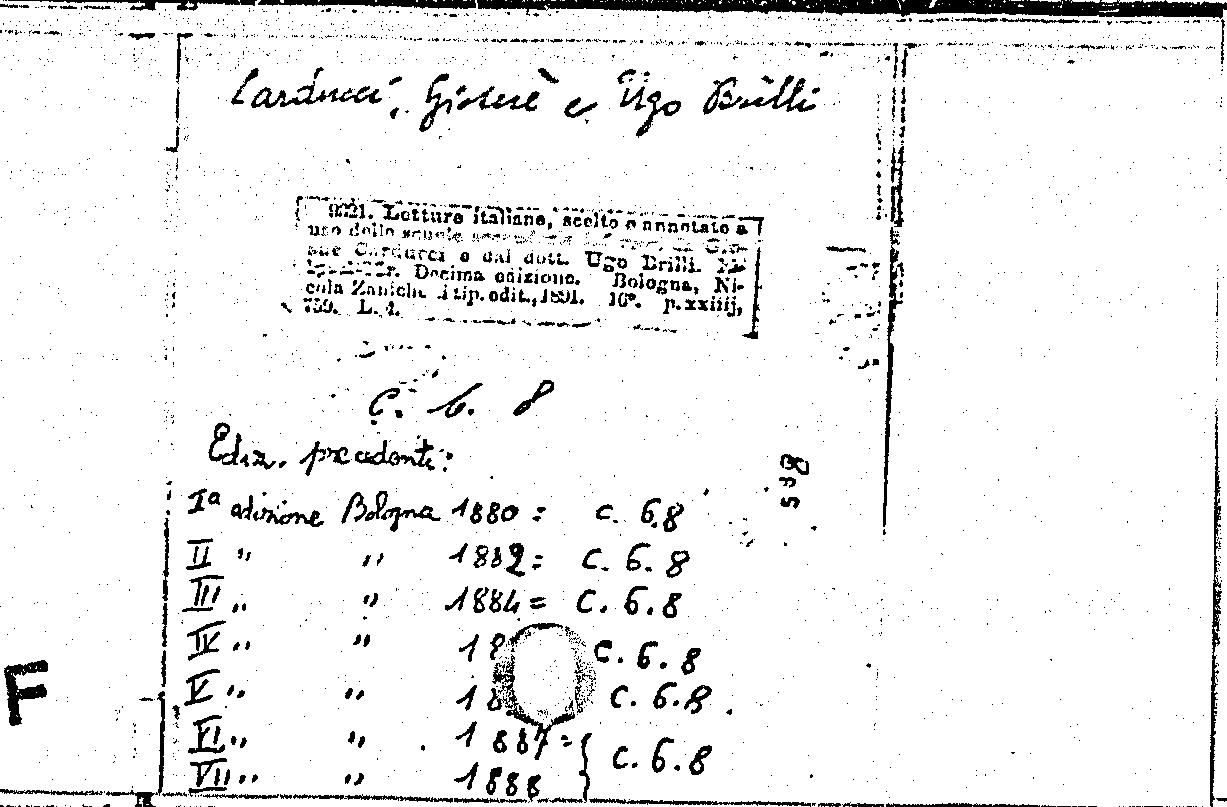 Carducci, Giosuè e Ugo Brilli
9321. Letture italiane, scelte e annotate a
uso delle scuole
sue Carducci e dal dott. Ugo Brilli.
Decima edizione. Bologna, Ni-
cola Zanich. tip. edit., 1891. 16°. p. xxiiij,
759. L. 4.
C. 6. 8
Ediz. precedenti:
Iª edizione Bologna 1880 = C. 6.8
II " " 1882 = C. 6.8
III " " 1884 = C. 6.8
IV " " 18 C. 6.8
V " " 18 C. 6.8.
VI " " 1887 = { C. 6.8
VII " " 1888
F